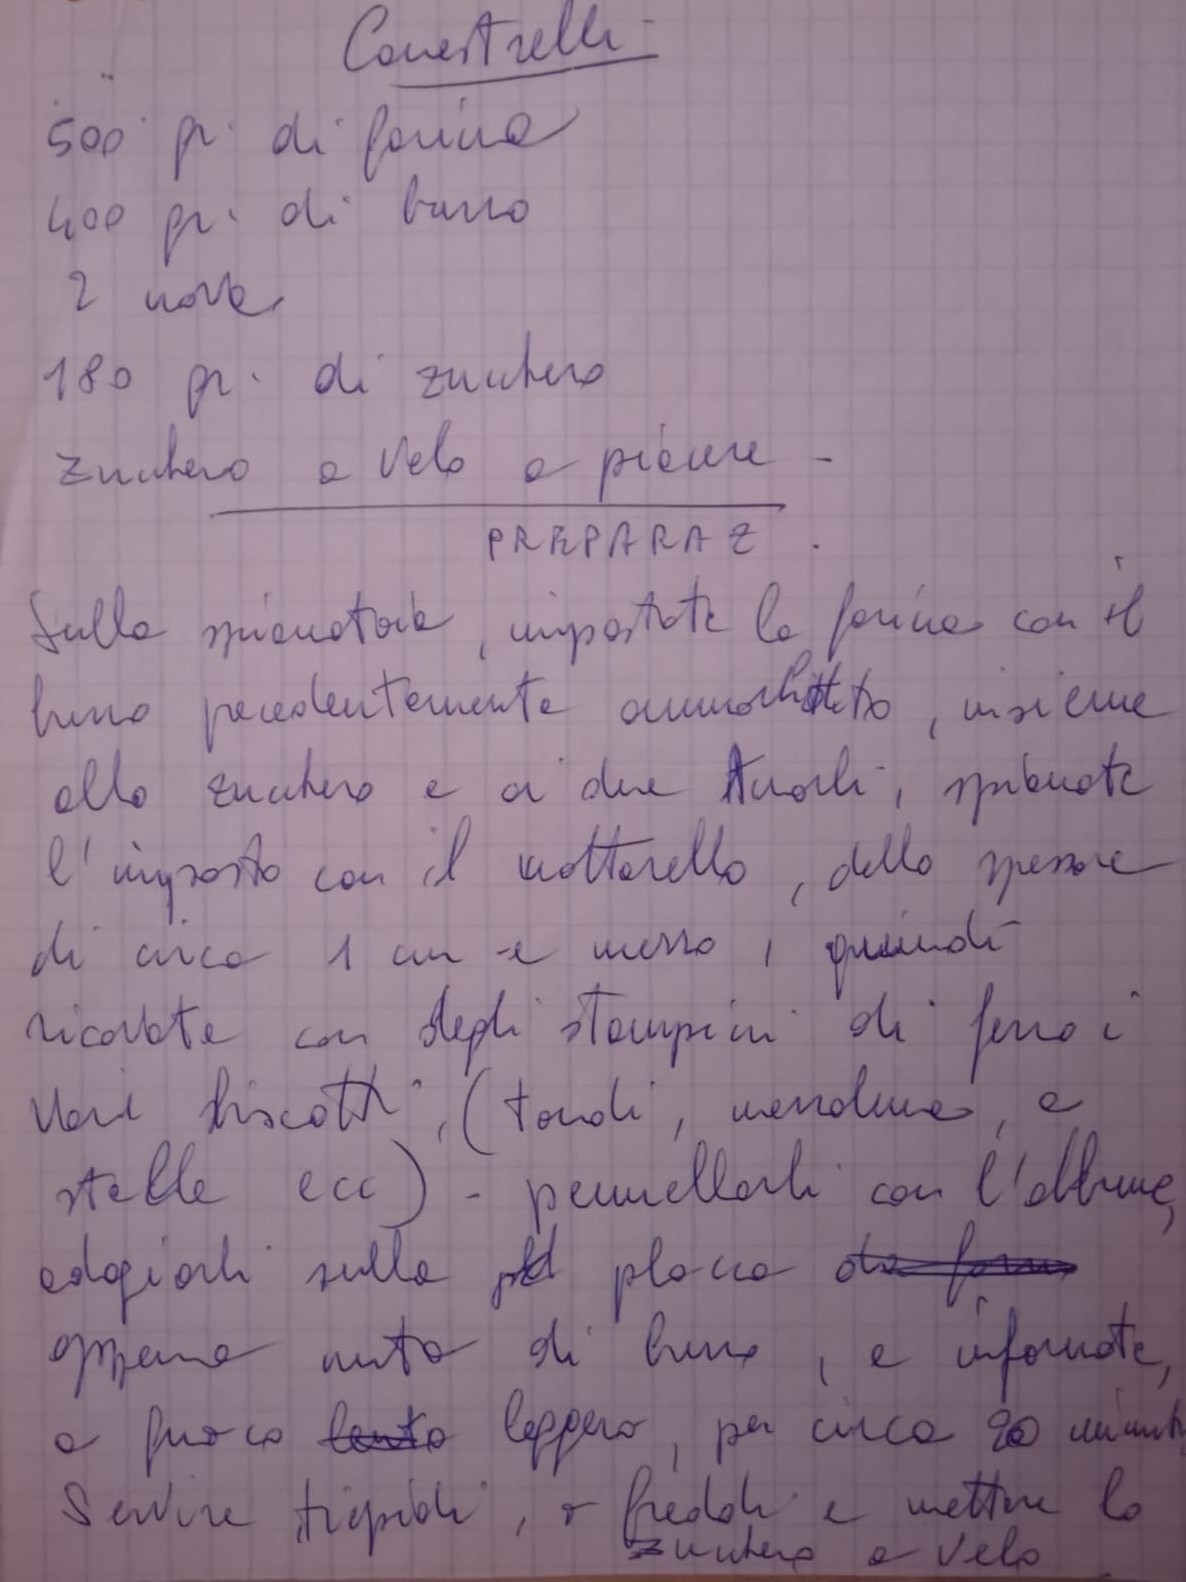 Canestrelli
500 gr. di farina
400 gr. di burro
2 uova
180 gr. di zucchero
Zucchero a velo a piacere -
PREPARAZ.
Sulla spianatoia, impastate la farina con il
burro precedentemente ammorbidito, insieme
allo zucchero e ai due tuorli, spianate
l'impasto con il mattarello, dello spessore
di circa 1 cm e mezzo, quindi
ricavate con degli stampini di ferro i
vari biscotti, (tondi, mezzaluna, a
stelle ecc) - pennellarli con l'albume,
adagiarli sulla placca da forno
appena unta di burro, e infornate,
a fuoco lento leggero, per circa 20 minuti
Servire tiepidi, o freddi e mettere lo
zucchero a velo